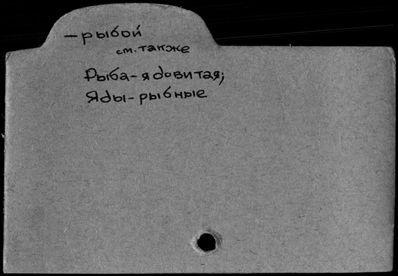 — рыбой
см. также
Рыба - ядовитая;
Яды - рыбные